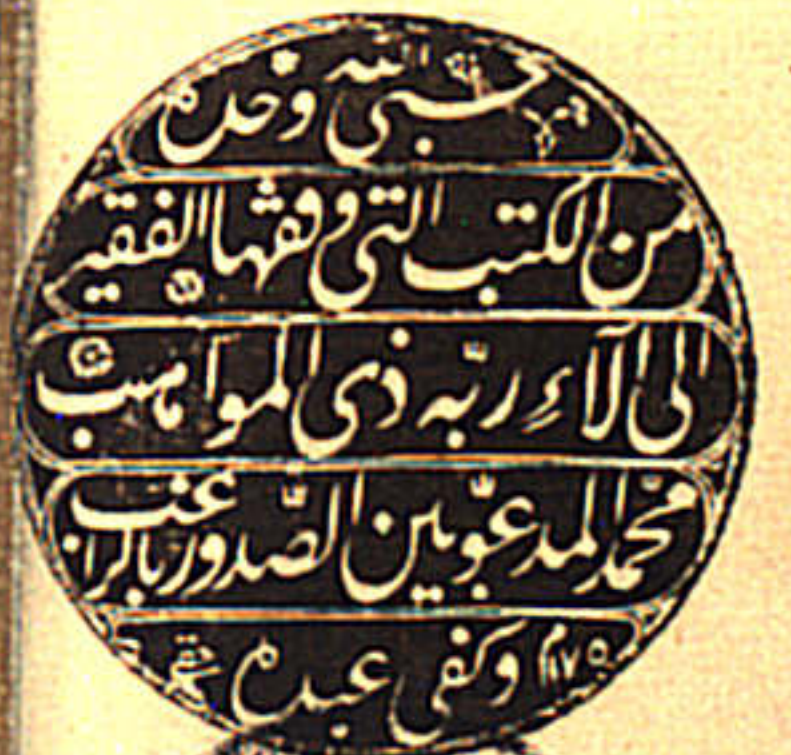 حسبي الله وحده
من الكتب التي وقفها الفقير
الى الآءِ ربّه ذى المواهب
محمّد المدعوّ بين الصّدور بالراغب
وكفى عبده